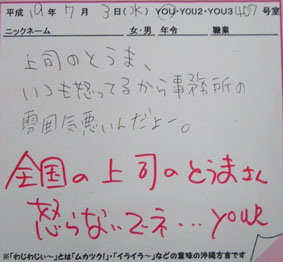 平成 19 年 7 月 3 日(水) YOU・YOU2・YOU3 407 号室
ニックネーム 女・男 年令 職業
上司のとうま、
いつも怒ってるから事務所の
雰囲気悪いんだよー。
全国の上司のとうまさん
怒らないでネ…you2
※「わじわじぃ〜」とは「ムカツク!」・「イライラ〜」などの意味の沖縄方言です